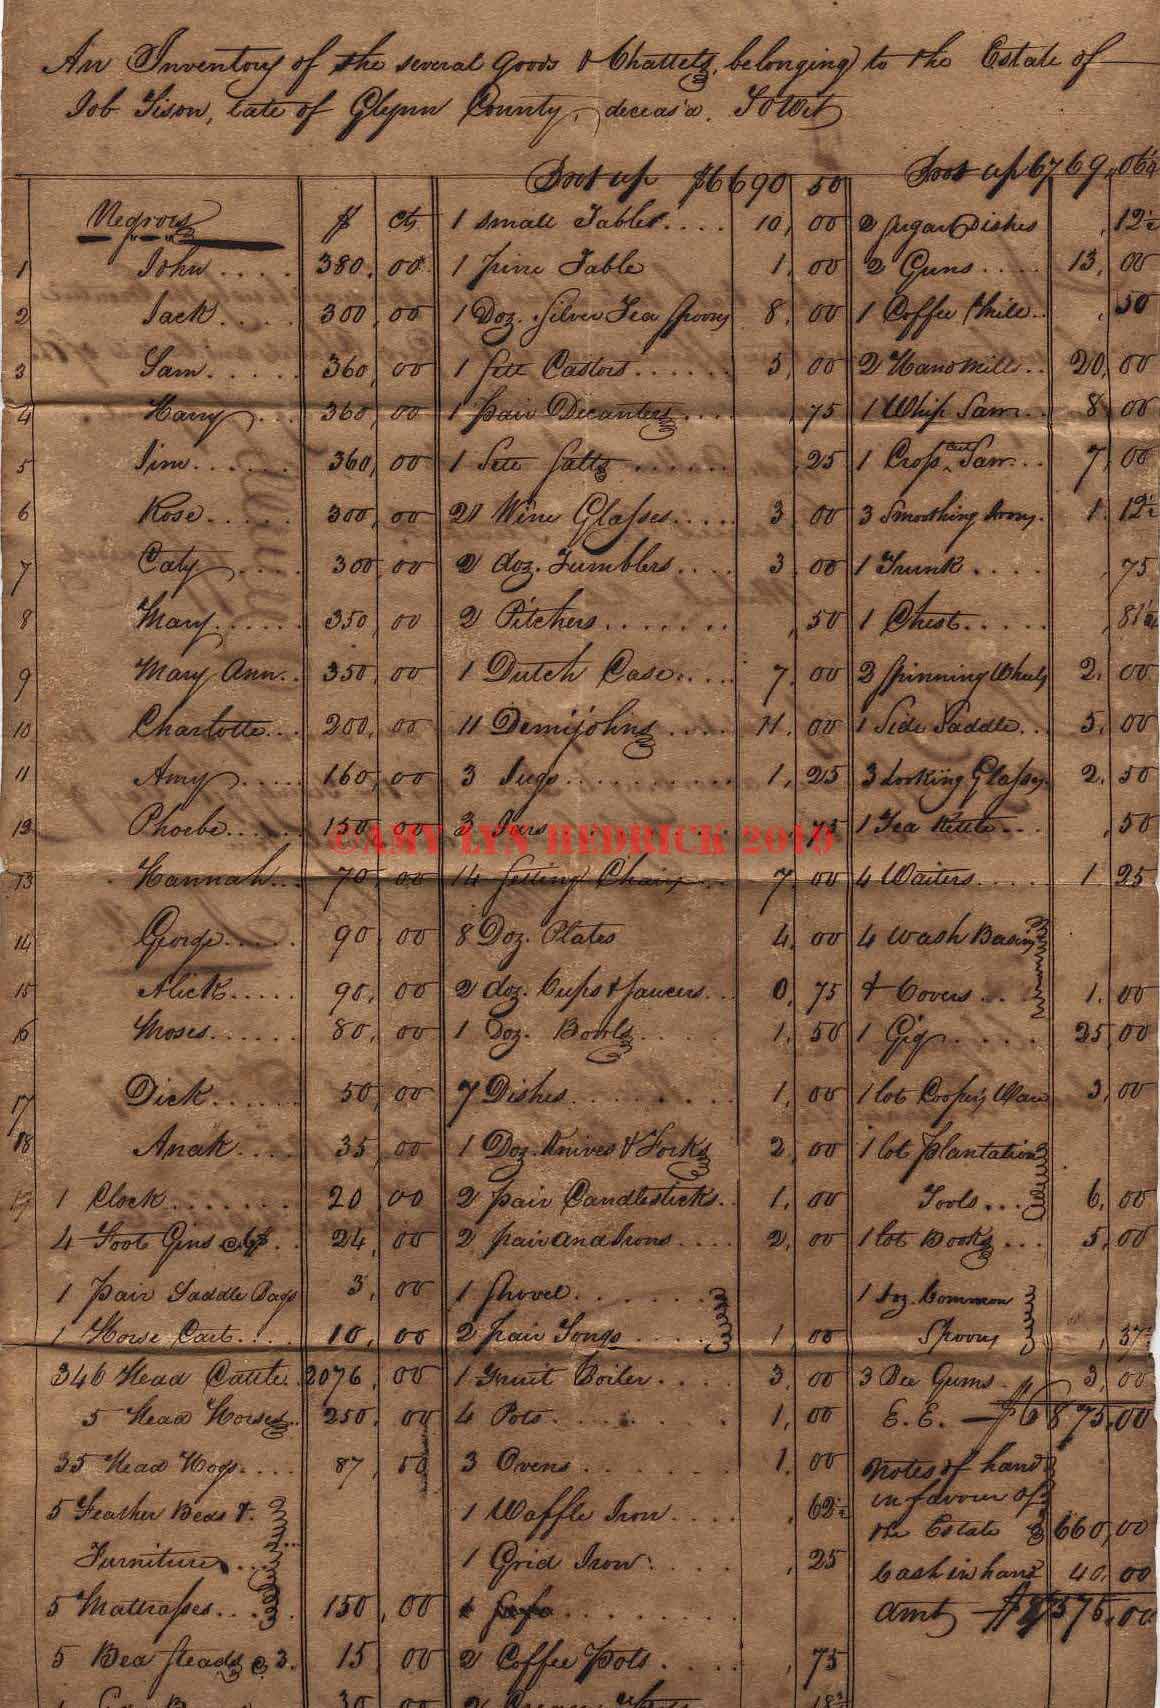 An Inventory of the several Goods & Chattels, belonging to the Estate of
Job Tison, late of Glynn County, deceas'd. To Wit
Negroes $ Cts
1 John.... 380. 00
2 Jack.... 300. 00
3 Sam..... 360. 00
4 Harry... 360. 00
5 Jim..... 360. 00
6 Rose..... 300. 00
7 Caty.... 300. 00
8 Mary...... 350. 00
9 Mary Ann.. 350. 00
10 Charlotte... 200. 00
11 Amy..... 160. 00
12 Phoebe..... 150. 00
13 Hannah... 70. 00
14 George.... 90. 00
15 Alick..... 90. 00
16 Moses...... 80. 00
17 Dick...... 50. 00
18 Anak.... 35. 00
19 1 Clock....... 20 00
4 Foot Gins @ 6$.. 24. 00
1 pair Saddle Bags 3. 00
1 Horse Cart.... 10. 00
346 Head Cattle.. 2076. 00
5 Head Horses.. 250. 00
35 Head Hogs.... 87. 50
5 Feather Beds &
Furniture...
5 Mattrasses... 150. 00
5 Bea steads @ 3. 15. 00
30 00
Foot up $6690 50
1 small Table.... 10. 00
1 pine Table 1. 00
1 Doz. Silver Tea Spoons 8. 00
1 sett Castors...... 3. 00
1 pair Decanters.... 75
1 Sett Salts...... 25
21 Wine Glasses..... 3 00
2 doz. Tumblers.... 3. 00
2 Pitchers....... . 50
1 Dutch Case..... 7. 00
11 Demijohns.... 11. 00
3 Jugs.......... 1. 25
3 Jars 75
14 setting Chairs... 7. 00
8 Doz. Plates 4. 00
2 doz. Cups & saucers... 0. 75
1 Doz. Bowls..... 1. 50
7 Dishes......... 1. 00
1 Doz. Knives & Forks 2. 00
2 pair Candlesticks.. 1. 00
2 pair And Irons.... 2. 00
1 shovel.......
2 pair Tongs.... 1. 00
1 Fruit Boiler.... 3. 00
4 Pots....... 1. 00
3 Ovens...... 1. 00
1 Waffle Iron.... . 62½
1 Grid Iron..... . 25
2 Coffee Pots..... . 75
Foot up 6769. 06¼
2 sugar Dishes . 12½
2 Guns.... 13. 00
1 Coffee Mill.. . 50
2 Hand Mills.. 20. 00
1 Whip Saw... 8 00
1 Cross Cut Saw... 7. 00
3 Smoothing Irons. 1. 12½
1 Trunk.... . 75
1 Chest..... . 81¼
2 spinning Wheels 2. 00
1 Side Saddle... 5. 00
3 Looking Glasses 2. 50
1 Tea Kettle... . 50
4 Waiters..... 1 25
4 Wash Basins
& Covers... 1. 00
1 Gig..... 25. 00
1 lot Coopers Ware 3. 00
1 lot plantation
Tools... 6. 00
1 lot Books... 5. 00
1 doz. Common
Spoons . 37½
3 Bee Gums.. 3. 00
E. E. — $6875.00
Notes of hand
in favour of
the Estate 660.00
Cash in hand 40. 00
Amt — $7575.00
©AMY LYN HEDRICK 2019